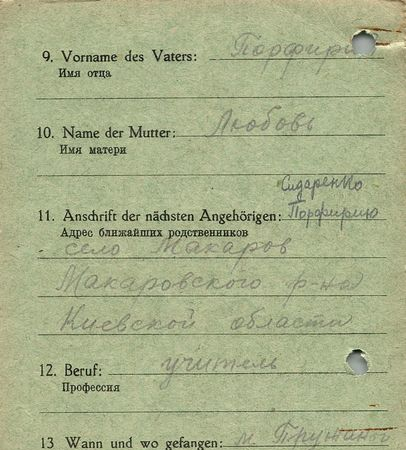 9. Vorname des Vaters: Порфирий
Имя отца
10. Name der Mutter: Любовь
Имя матери
Сидаренко
11. Anschrift der nächsten Angehörigen: Порфирию
Адрес ближайших родственников
село Макаров
Макаровского р-на
Киевской области
12. Beruf: учитель
Профессия
13 Wann und wo gefangen: м. Пружаны